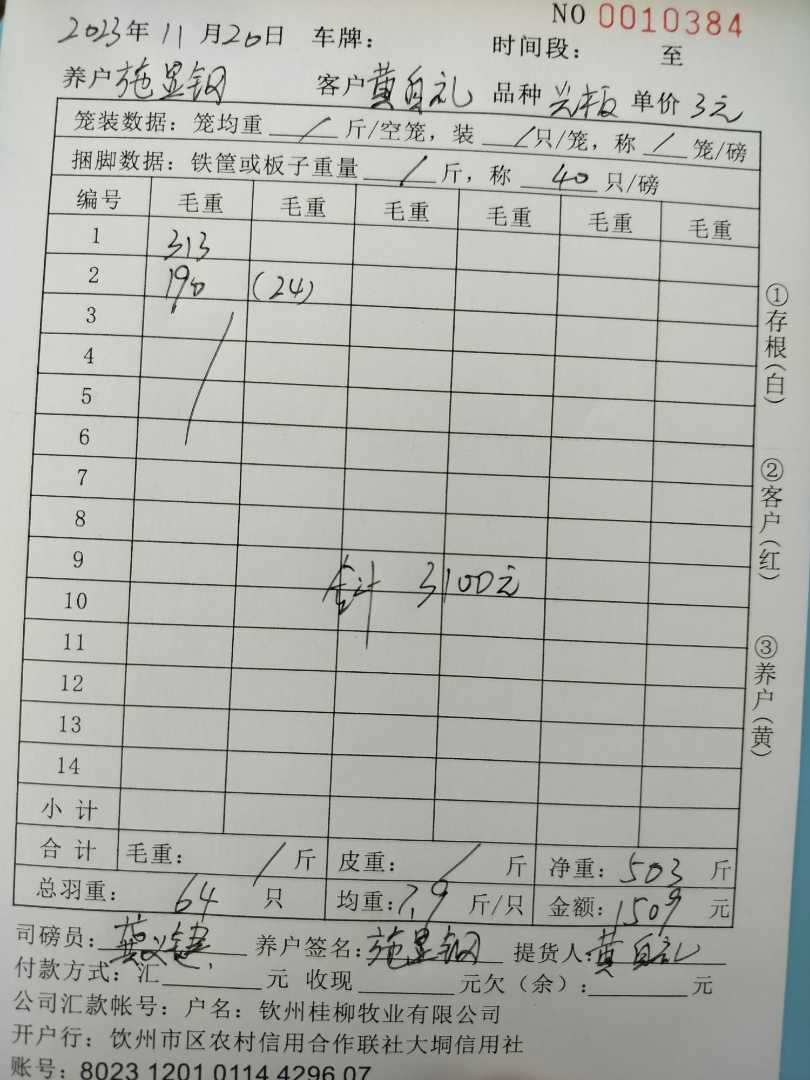 NO 0010384
2023年11月20日 车牌： 时间段： 至
养户 施显钢 客户 黄自礼 品种 单价 3元
笼装数据：笼均重 / 斤/空笼，装 / 只/笼，称 / 笼/磅
捆脚数据：铁筐或板子重量 / 斤，称 40 只/磅
编号 毛重 毛重 毛重 毛重 毛重 毛重
1 313
2 190 (24)
3
4
5
6
7
8
9
合计 3100元
10
11
12
13
14
小计
合计 毛重： / 斤 皮重： / 斤 净重：503 斤
总羽重： 64 只 均重：7.9 斤/只 金额：1509 元
司磅员： 养户签名：施显钢 提货人：黄自礼
付款方式：汇 元 收现 元欠（余）： 元
公司汇款帐号：户名：钦州桂柳牧业有限公司
开户行：饮州市区农村信用合作联社大垌信用社
账号：8023 1201 0114 4296 07
①存根（白）
②客户（红）
③养户（黄）